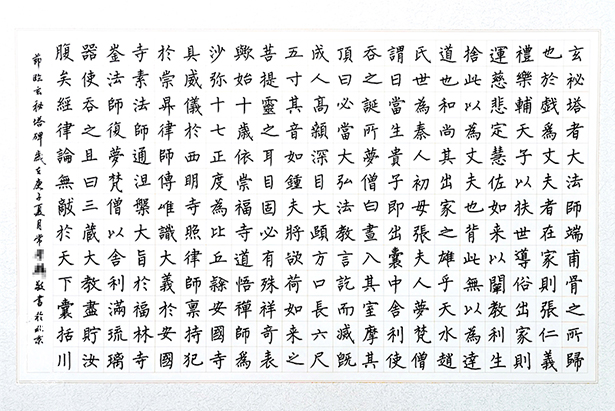 玄祕塔者大法師端甫骨之所歸
也於戲為丈夫者在家則張仁義
禮樂輔天子以扶世導俗出家則
運慈悲定慧佐如來以闡教利生
捨此以為丈夫也背此無以為達
道也和尚其出家之雄乎天水趙
氏世為秦人初母張夫人夢梵僧
謂曰當生貴子即出囊中舍利使
吞之誕所夢僧白晝入其室摩其
頂曰必當大弘法教言訖而滅既
成人高顙深目大頤方口長六尺
五寸其音如鍾夫將欲荷如來之
菩提靈之耳目固必有殊祥奇表
歟始十歲依崇福寺道悟禪師為
沙弥十七正度為比丘隸安國寺
具威儀於西明寺照律師稟持犯
於崇昇律師傳唯識大義於安國
寺素法師通涅槃大旨於福林寺
崟法師復夢梵僧以舍利滿琉璃
器使吞之且曰三藏大教盡貯汝
腹矣經律論無敵於天下囊括川
節臨玄秘塔碑歲在庚子夏月常敬書於北京